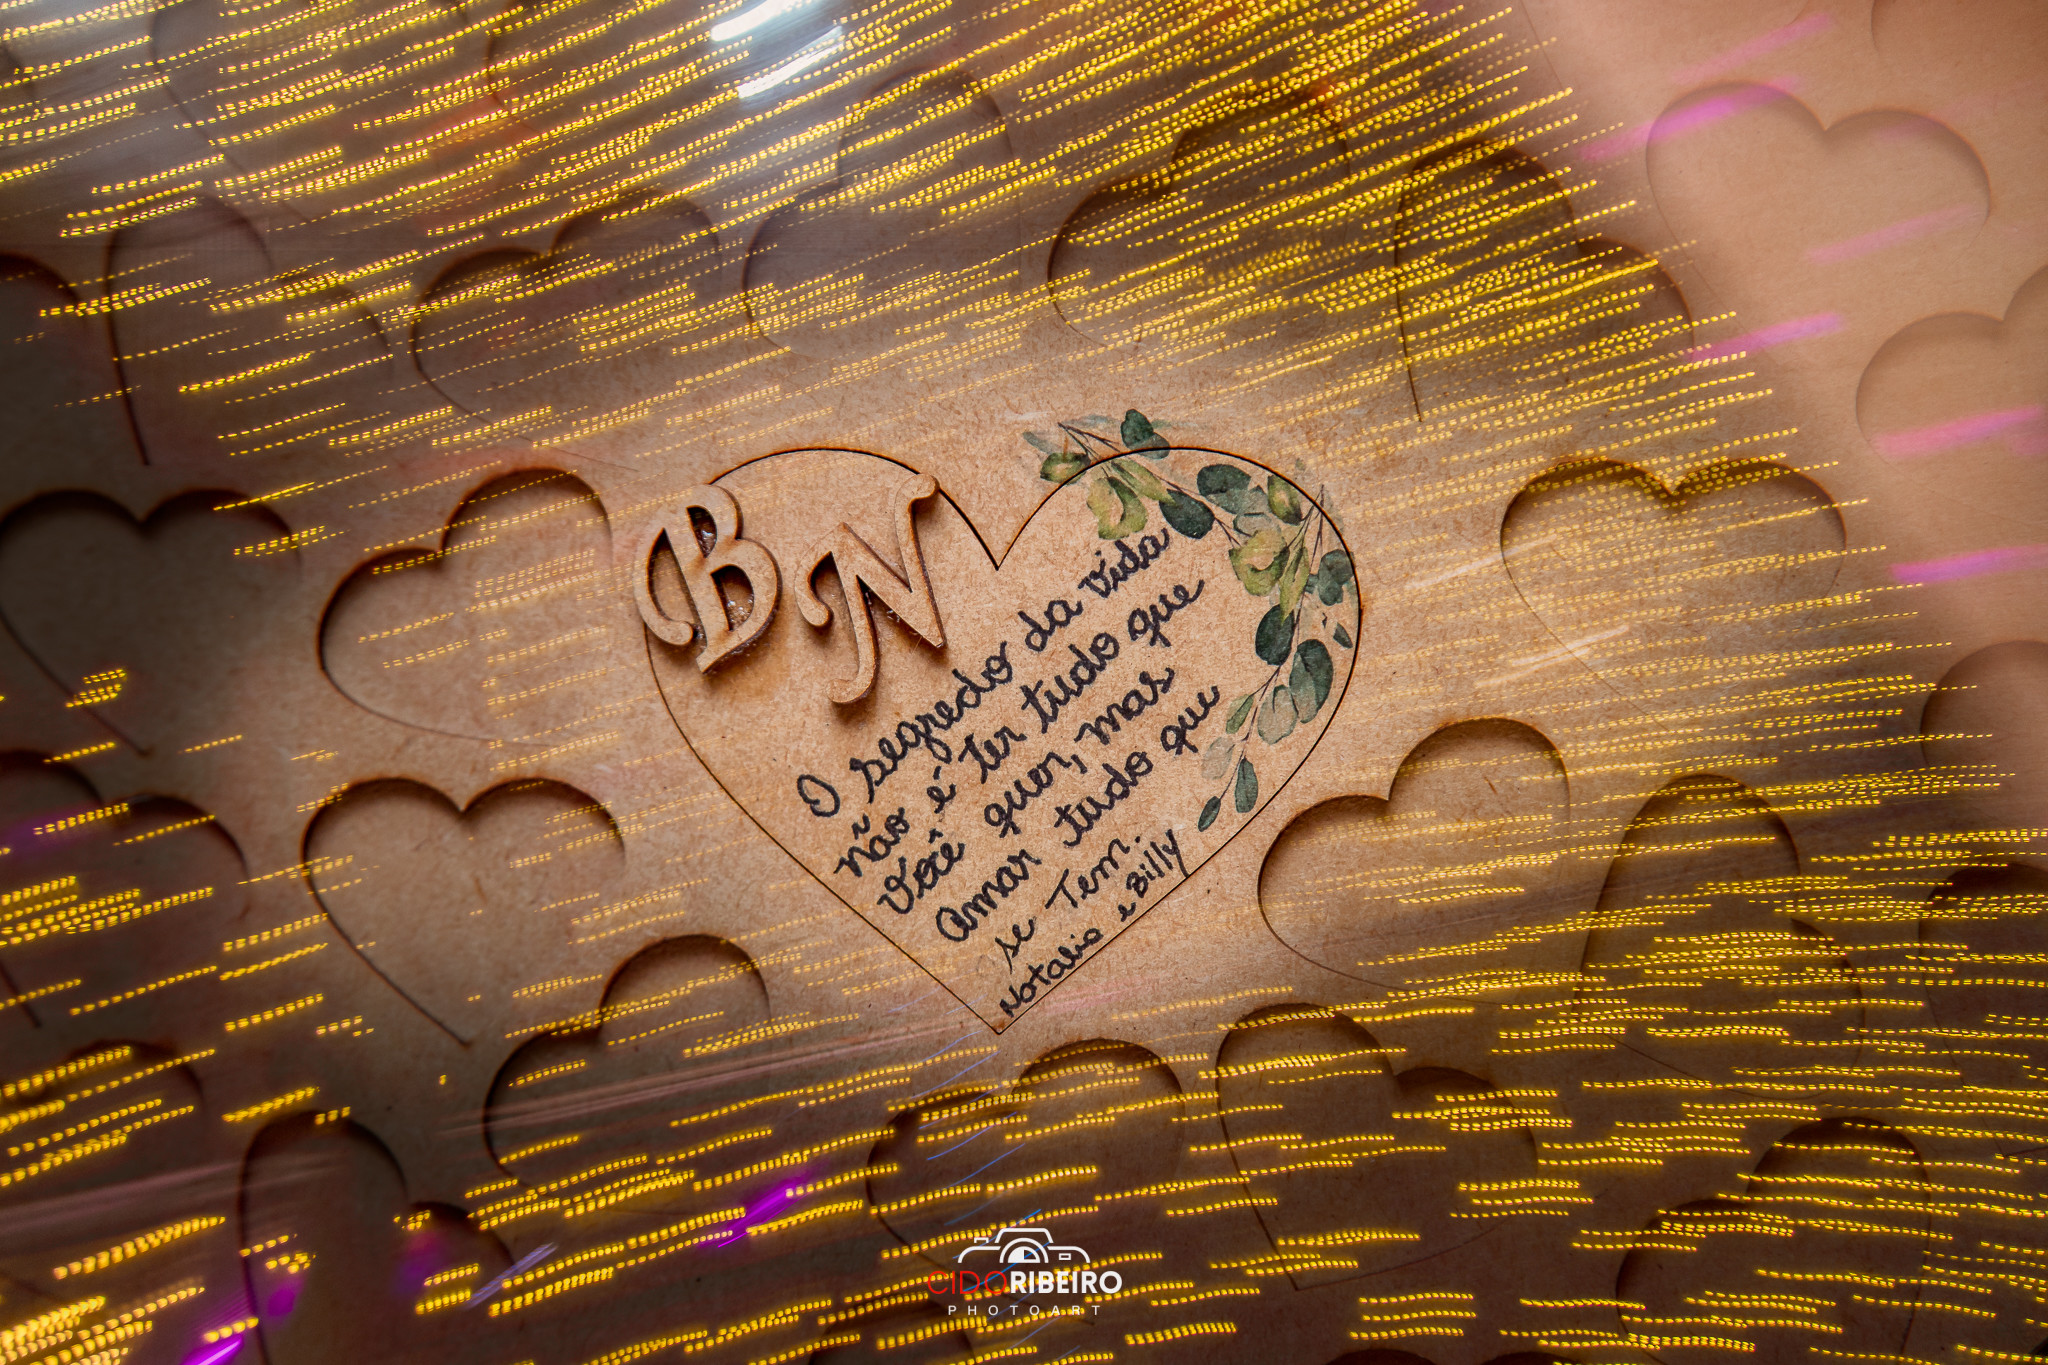 B N
O segredo da vida
não é ter tudo que
você quer, mas
amar tudo que
se Tem.
Natalia e Billy
CIDORIBEIRO
PHOTOART